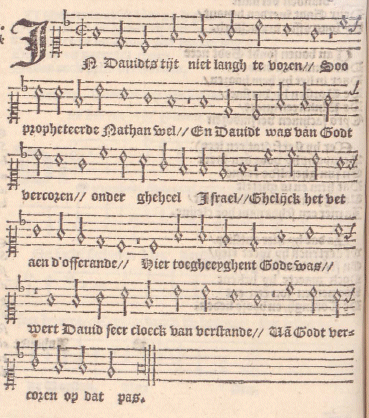 IN Dauidts tijt niet langh te voren// Soo
propheteerde Nathan wel// En Dauidt was van Godt
vercoren// onder gheheel Israel// Ghelijck het vet
aen d'offerande// Hier toegheeyghent Gode was//
wert Dauid seer cloeck van verstande// Uā Godt ver-
coren op dat pas.